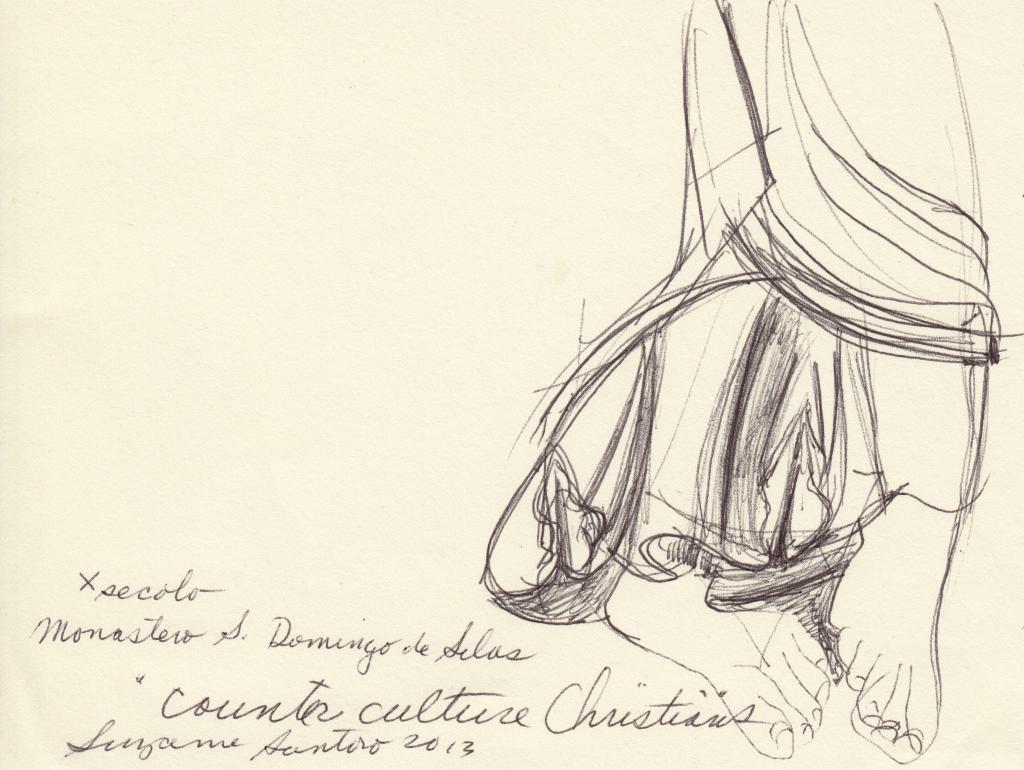 X secolo
Monastero S. Domingo de Silos
"counter culture Christians
Suzanne Santoro 2013